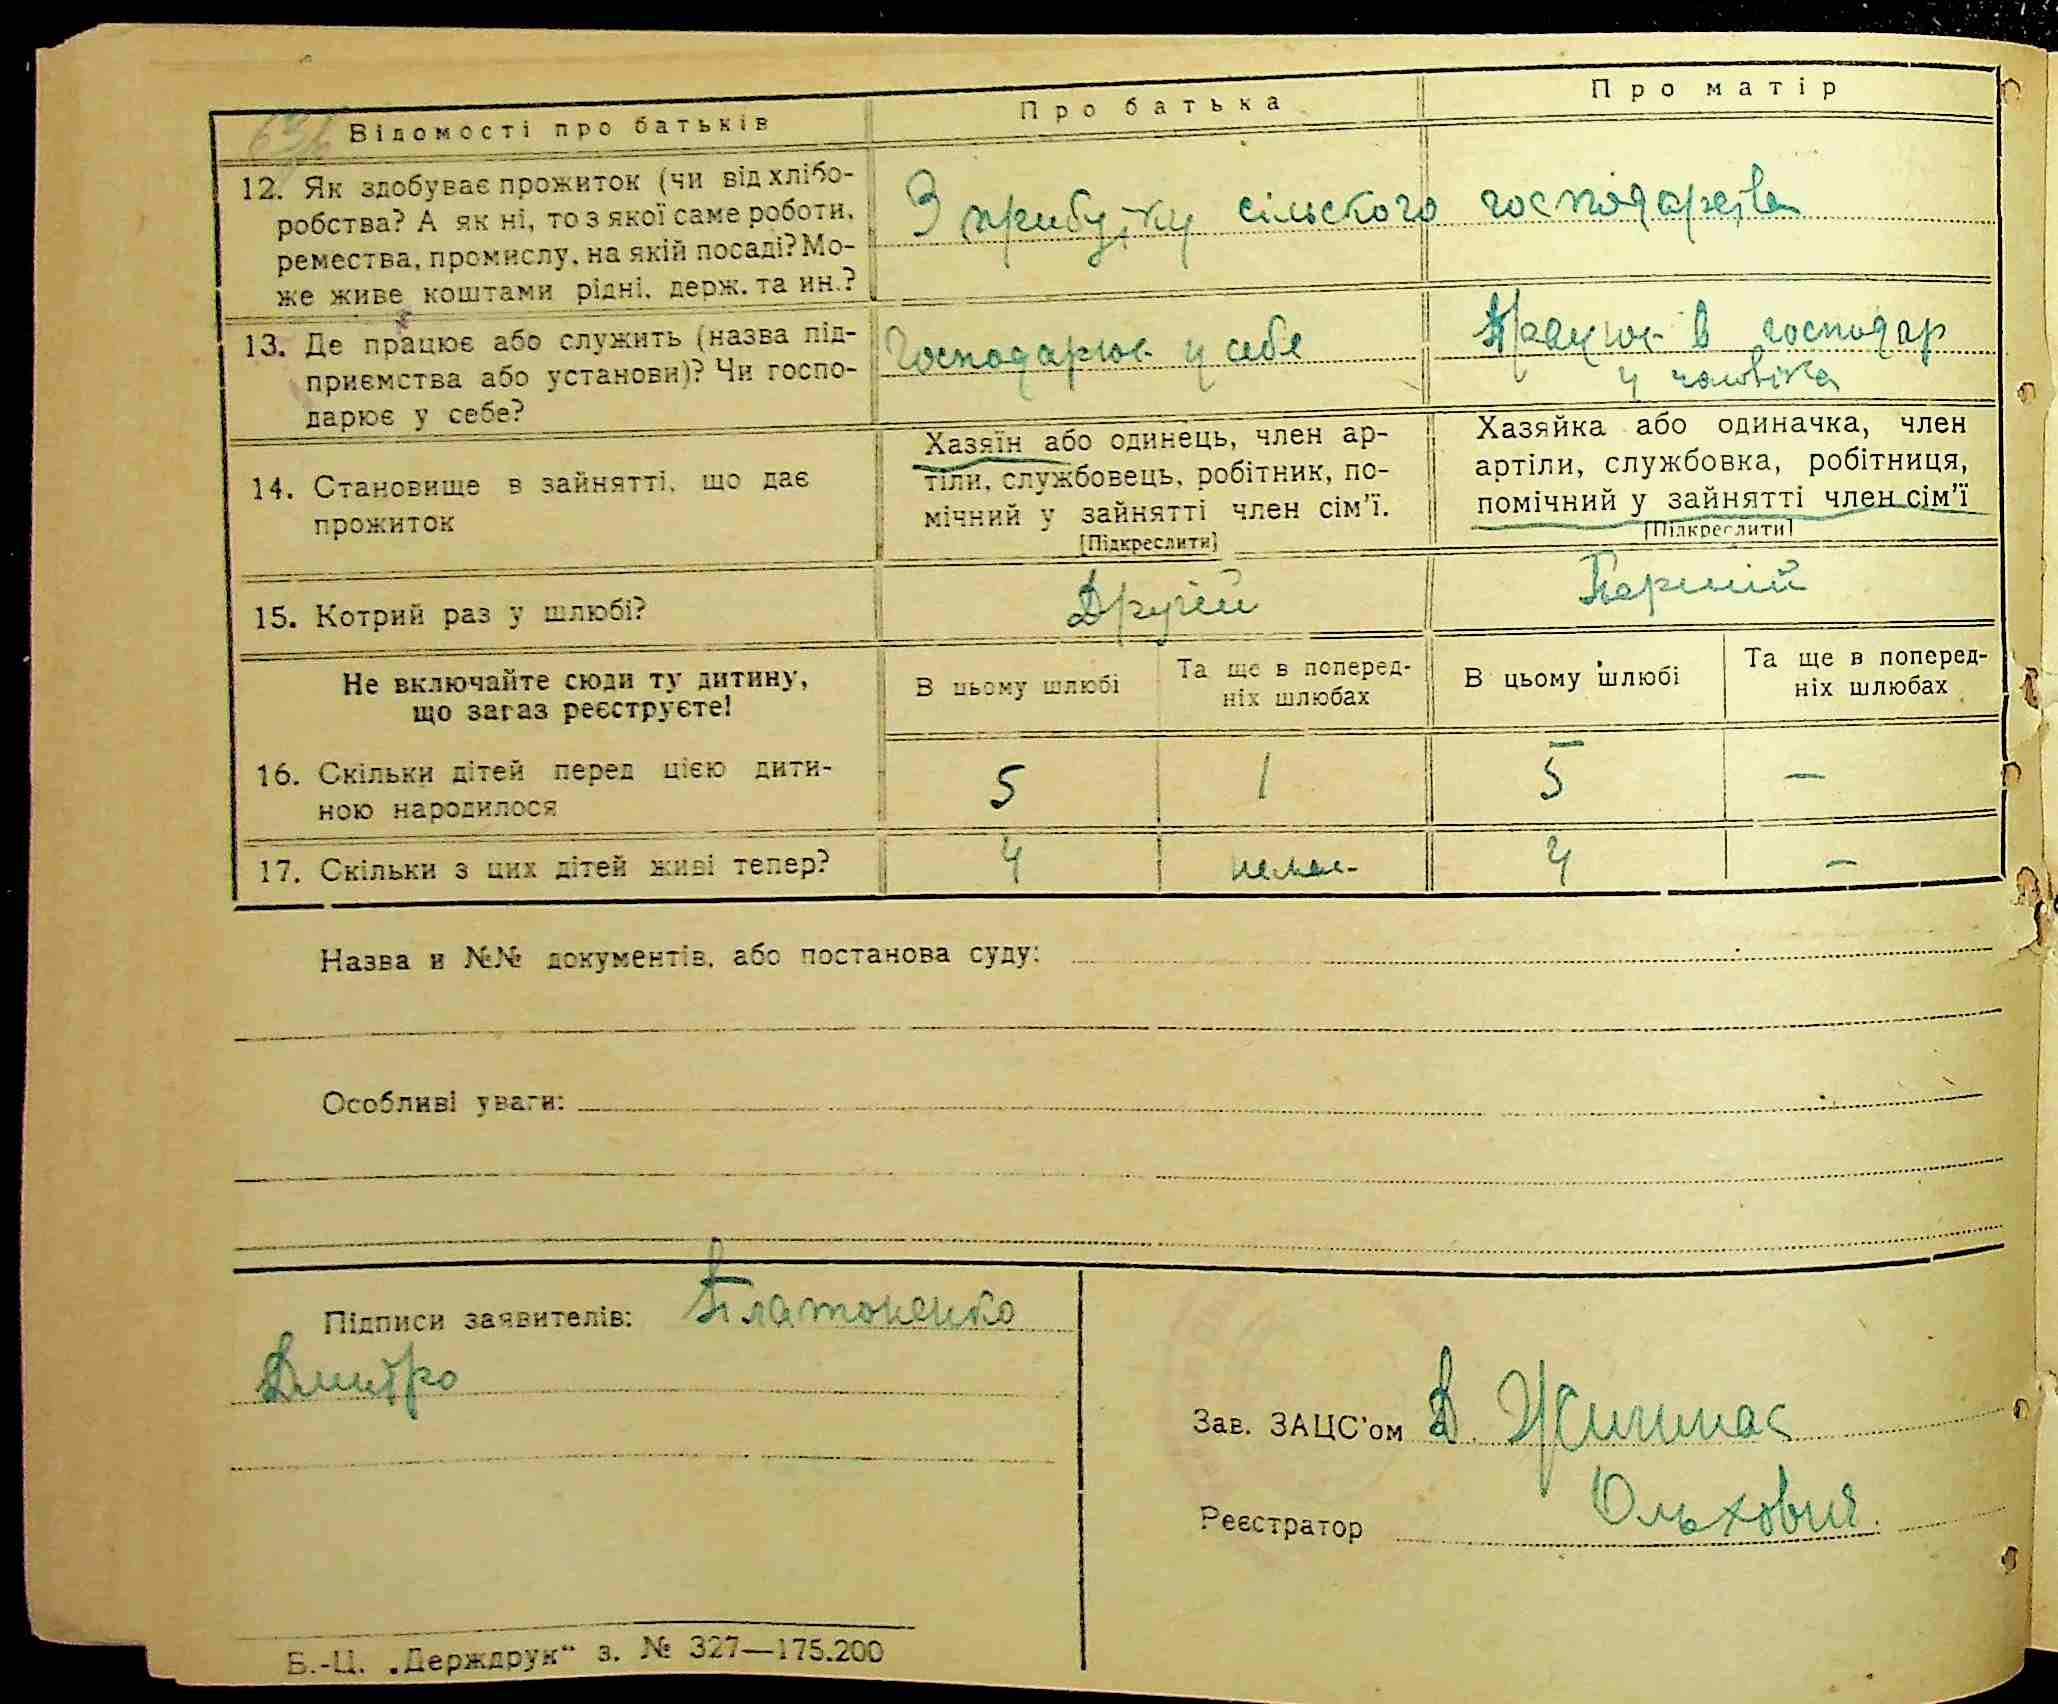 Відомості про батьків
Про батька
Про матір
12. Як здобуває прожиток (чи від хлібо-
робства? А як ні, то з якої саме роботи,
ремества, промислу, на якій посаді? Мо-
же живе коштами рідні, держ. та ин.?
З прибутку сільского господарства
13. Де працює або служить (назва під-
приємства або установи)? Чи госпо-
дарює у себе?
Господарює у себе
Працює в господар
у чоловіка
14. Становище в зайнятті, що дає
прожиток
Хазяїн або одинець, член ар-
тіли, службовець, робітник, по-
мічний у зайнятті член сім'ї.
[Підкреслити]
Хазяйка або одиначка, член
артіли, службовка, робітниця,
помічний у зайнятті член сім'ї
[Підкреслити]
15. Котрий раз у шлюбі?
Другій
Перший
Не включайте сюди ту дитину,
що зараз реєструєте!
В цьому шлюбі
Та ще в поперед-
ніх шлюбах
В цьому шлюбі
Та ще в поперед-
ніх шлюбах
16. Скільки дітей перед цією дити-
ною народилося
5 1 5 —
17. Скільки з цих дітей живі тепер?
4 немає 4 —
Назва и №№ документів, або постанова суду:
Особливі уваги:
Підписи заявителів: Платоненко
Дмитро
Зав. ЗАЦС'ом
Реєстратор
Б.-Ц. „Держдрук“ з. № 327—175.200